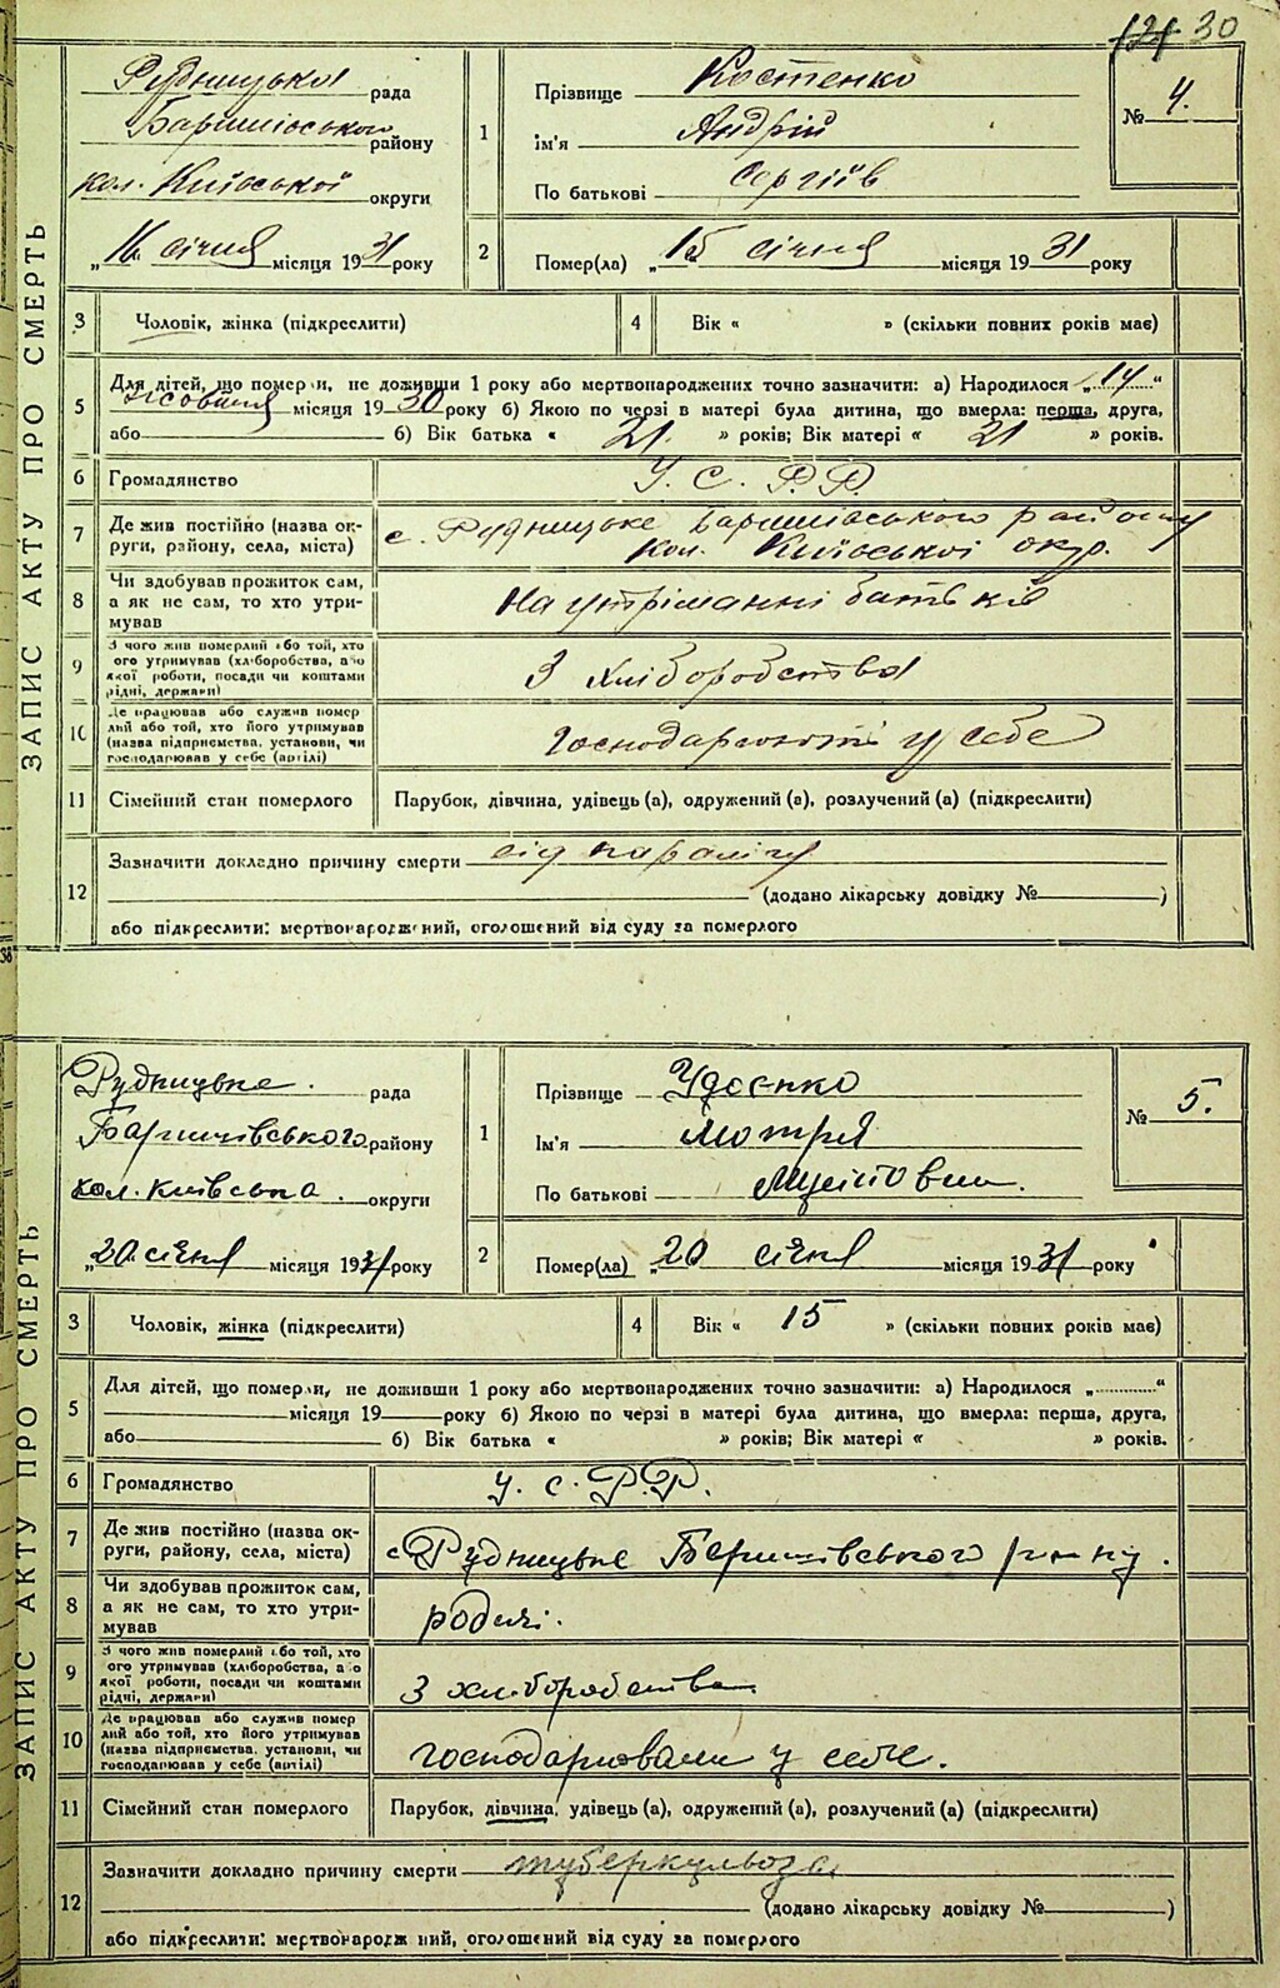 121 30
ЗАПИС АКТУ ПРО СМЕРТЬ
Рудницька рада
Баришівського району
кол. Київської округи
„16" січня місяця 1931 року
1
Прізвище Костенко
Ім'я Андрій
По батькові Сергіїв
№ 4.
2
Помер(ла) „15 січня місяця 1931 року
3 Чоловік, жінка (підкреслити)
4 Вік « » (скільки повних років має)
5 Для дітей, що померли, не доживши 1 року або мертвонароджених точно зазначити: а) Народилося „14"
місяця 1930 року б) Якою по черзі в матері була дитина, що вмерла: перша, друга,
або б) Вік батька « 21. » років; Вік матері « 21 » років.
6 Громадянство У. С. Р. Р.
7 Де жив постійно (назва округи, району, села, міста) с. Рудницьке Баришівського району
кол. Київської окр.
8 Чи здобував прожиток сам,
а як не сам, то хто утримував
На утріманні батьків
9 З чого жив померлий або той, хто
ого утримував (хліборобства, або
якої роботи, посади чи коштами
рідні, держави)
З хліборобства
10 Де працював або служив помер
лий або той, хто його утримував
(назва підприємства, установи, чи
господарював у себе (артілі)
у себе
11 Сімейний стан померлого Парубок, дівчина, удівець (а), одружений (а), розлучений (а) (підкреслити)
12 Зазначити докладно причину смерти від паралічу
(додано лікарську довідку № )
або підкреслити: мертвонароджений, оголошений від суду за померлого
38
ЗАПИС АКТУ ПРО СМЕРТЬ
Рудницьке. рада
Баришівського району
кол. Київська. округи
„20 січня місяця 1931 року
1
Прізвище Удоєнко
Ім'я Мотря
По батькові
№ 5.
2
Помер(ла) „20 січня місяця 1931 року
3 Чоловік, жінка (підкреслити)
4 Вік « 15 » (скільки повних років має)
5 Для дітей, що померли, не доживши 1 року або мертвонароджених точно зазначити: а) Народилося „ "
місяця 19 року б) Якою по черзі в матері була дитина, що вмерла: перша, друга,
або б) Вік батька « » років; Вік матері « » років.
6 Громадянство У. С. Р. Р.
7 Де жив постійно (назва округи, району, села, міста) с. Рудницьке Баришівського р-ну.
8 Чи здобував прожиток сам,
а як не сам, то хто утримував
родичі.
9 З чого жив померлий або той, хто
ого утримував (хліборобства, або
якої роботи, посади чи коштами
рідні, держави)
З хліборобства
10 Де працював або служив помер
лий або той, хто його утримував
(назва підприємства, установи, чи
господарював у себе (артілі)
господарювали у себе.
11 Сімейний стан померлого Парубок, дівчина, удівець (а), одружений (а), розлучений (а) (підкреслити)
12 Зазначити докладно причину смерти туберкульоза
(додано лікарську довідку № )
або підкреслити: мертвонародж ний, оголошений від суду за померлого